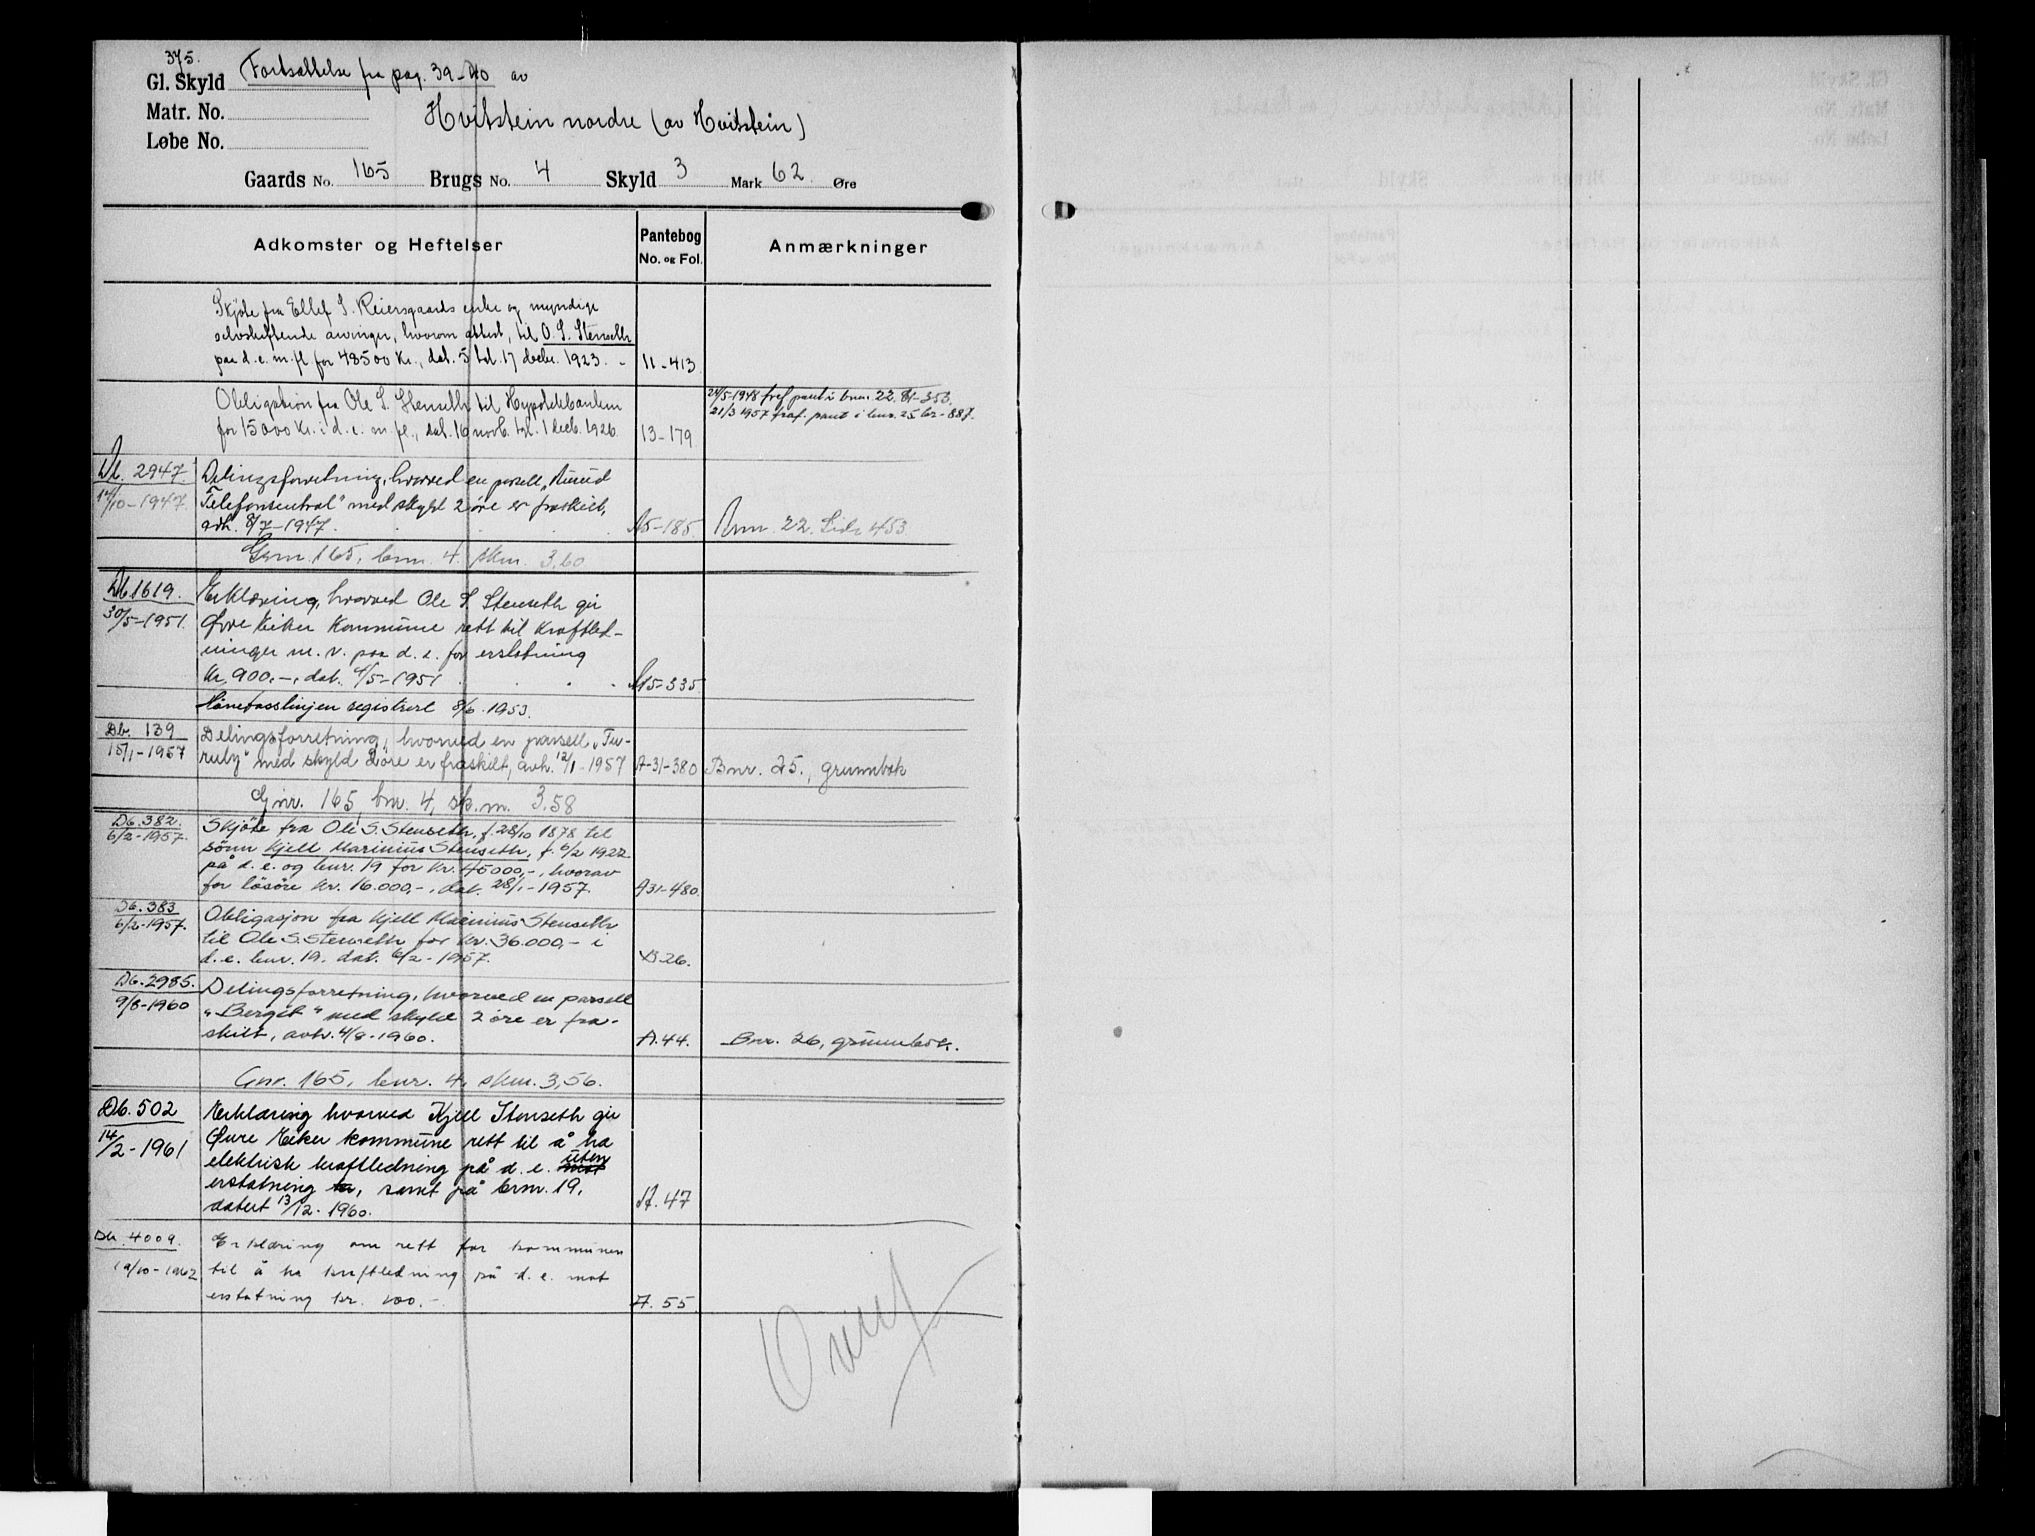 375.
Gl. Skyld Fortsættelse fra pag. 39-40 av
Matr. No.
Hvitstein nordre (av Hvitstein)
Løbe No.
Gaards No. 165 Brugs No. 4 Skyld 3 Mark 62 Øre
Adkomster og Heftelser
Pantebog No. og Fol.
Anmærkninger
Skjøte fra Ellef S. Reiersgaards enke og myndige
selvskiftende arvinger, hvorom attest, til O. S. Stenseth
paa d. e. m. fl for 48500 Kr., dat. 5 tgl. 17 decbr. 1923. - 11-413
Obligation fra Ole S. Stenseth til Hypotekbanken
for 15000 Kr. i d. e. m. fl., dat. 16 novb. tgl. 1 decb. 1926. 13-179
24/5-1948 fraf pant i bnr. 22.
21/3 1957 fraf. pant i bnr. 25 - 887.
Db. 2947.
14/10-1947.
Delingsforretning, hvorved en parsell „
Telefonsentral" med skyld 2 øre er fraskilt,
avh. 8/7-1947. A5-185. Bnr. 22. Side 453
Gnr. 165, bnr. 4. skm. 3,60
Db 1619.
30/5-1951.
Erklæring, hvorved Ole S. Stenseth gir
Øvre Eiker Kommune rett til kraftled-
ninger m. v. paa d. e. for erstatning
kr. 900.-, dat. 4/5-1951 A15-335.
linjen registrert 8/6. 1953.
Db. 139
15/1-1957
Delingsforretning, hvorved en parsell „Fu-
ruly" med skyld 2 øre er fraskilt, avh. 12/1-1957 A-31-380 Bnr. 25., grunnbok
Gnr. 165, bnr. 4, sk.m. 3.58
Db. 382.
6/2-1957.
Skjöte fra Ole S. Stenseth, f. 28/10 1878 til
sönn Kjell Marinius Stenseth, f. 6/2 1922
på d. e. og bnr. 19 for kr. 45000,-, hvorav
for lösöre kr. 16.000,-, dat. 28/1-1957. A31-480.
Db. 383
6/2-1957.
Obligasjon fra Kjell Marinius Stenseth
til Ole S. Stenseth for kr. 36.000,- i
d. e. bnr. 19. dat. 6/2-1957. B 26.
Db. 2985.
9/8-1960
Delingsforretning, hvorved en parsell
„Bergit" med skyld 2 öre er fra-
skilt, avh. 4/8-1960. A. 44. Bnr. 26, grunnbok.
Gnr. 165, bnr. 4, skm. 3,56.
Db. 502
14/2-1961
Erklæring hvorved Kjell Stenseth gir
Øvre Eiker kommune rett til å ha
elektrisk kraftledning på d. e. mot uten
erstatning kr, samt på bnr. 19,
datert 13/12-1960. A. 47
Db. 4009.
19/10-1962
Erklæring om rett for kommunen
til å ha kraftledning på d. e. mot
erstatning kr. 100.- A. 55